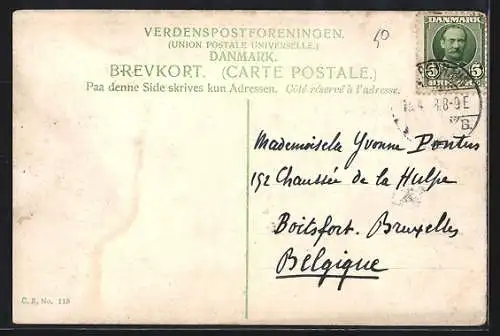 VERDENSPOSTFORENINGEN.
(UNION POSTALE UNIVERSELLE.)
DANMARK.
BREVKORT. (CARTE POSTALE.)
Paa denne Side skrives kun Adressen. Côté réservé à l'adresse.
40
DANMARK
5 5
8-9 E
B.
Mademoisela Yvonne Pontus
192 Chaussée de la Hulpe
Boitsfort. Bruxelles
Belgique
C. E. No. 118